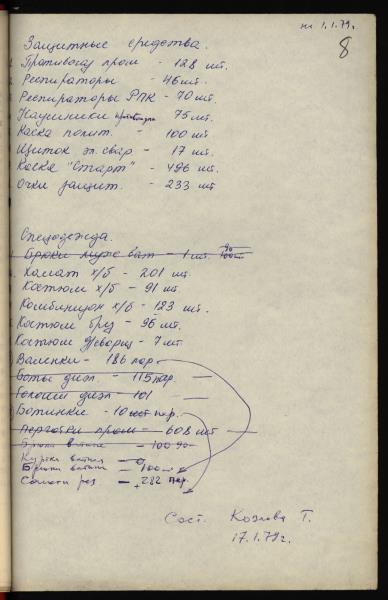 на 1.1.79г.
8
Защитные средства.
Противогаз пром - 128 шт.
Респираторы - 46 шт.
Респираторы РПК - 70 шт.
Наушники 75 шт.
Каска полит. - 100 шт
Щиток эл. свар - 17 шт.
Каска "Старт" - 496 шт.
Очки защит. - 233 шт
Спецодежда.
Брюки муж ват - 1 шт.
Халат х/б - 201 шт.
Костюм х/б - 91 шт
Комбинизон х/б - 123 шт.
Костюм брез - 96 шт.
Костюм - 7 шт
Валенки - 186 пар.
Боты диэл. - 115 пар.
Галоши диэл - 101 -
Ботинки - 10 пар.
Перчатки пром - 608 шт -
Брюки ватные - 100
Куртки ватные - 0
Брюки ватные - 100
Сапоги рез - +282 пар.
Сост. Козлова Т.
17.1.79г.